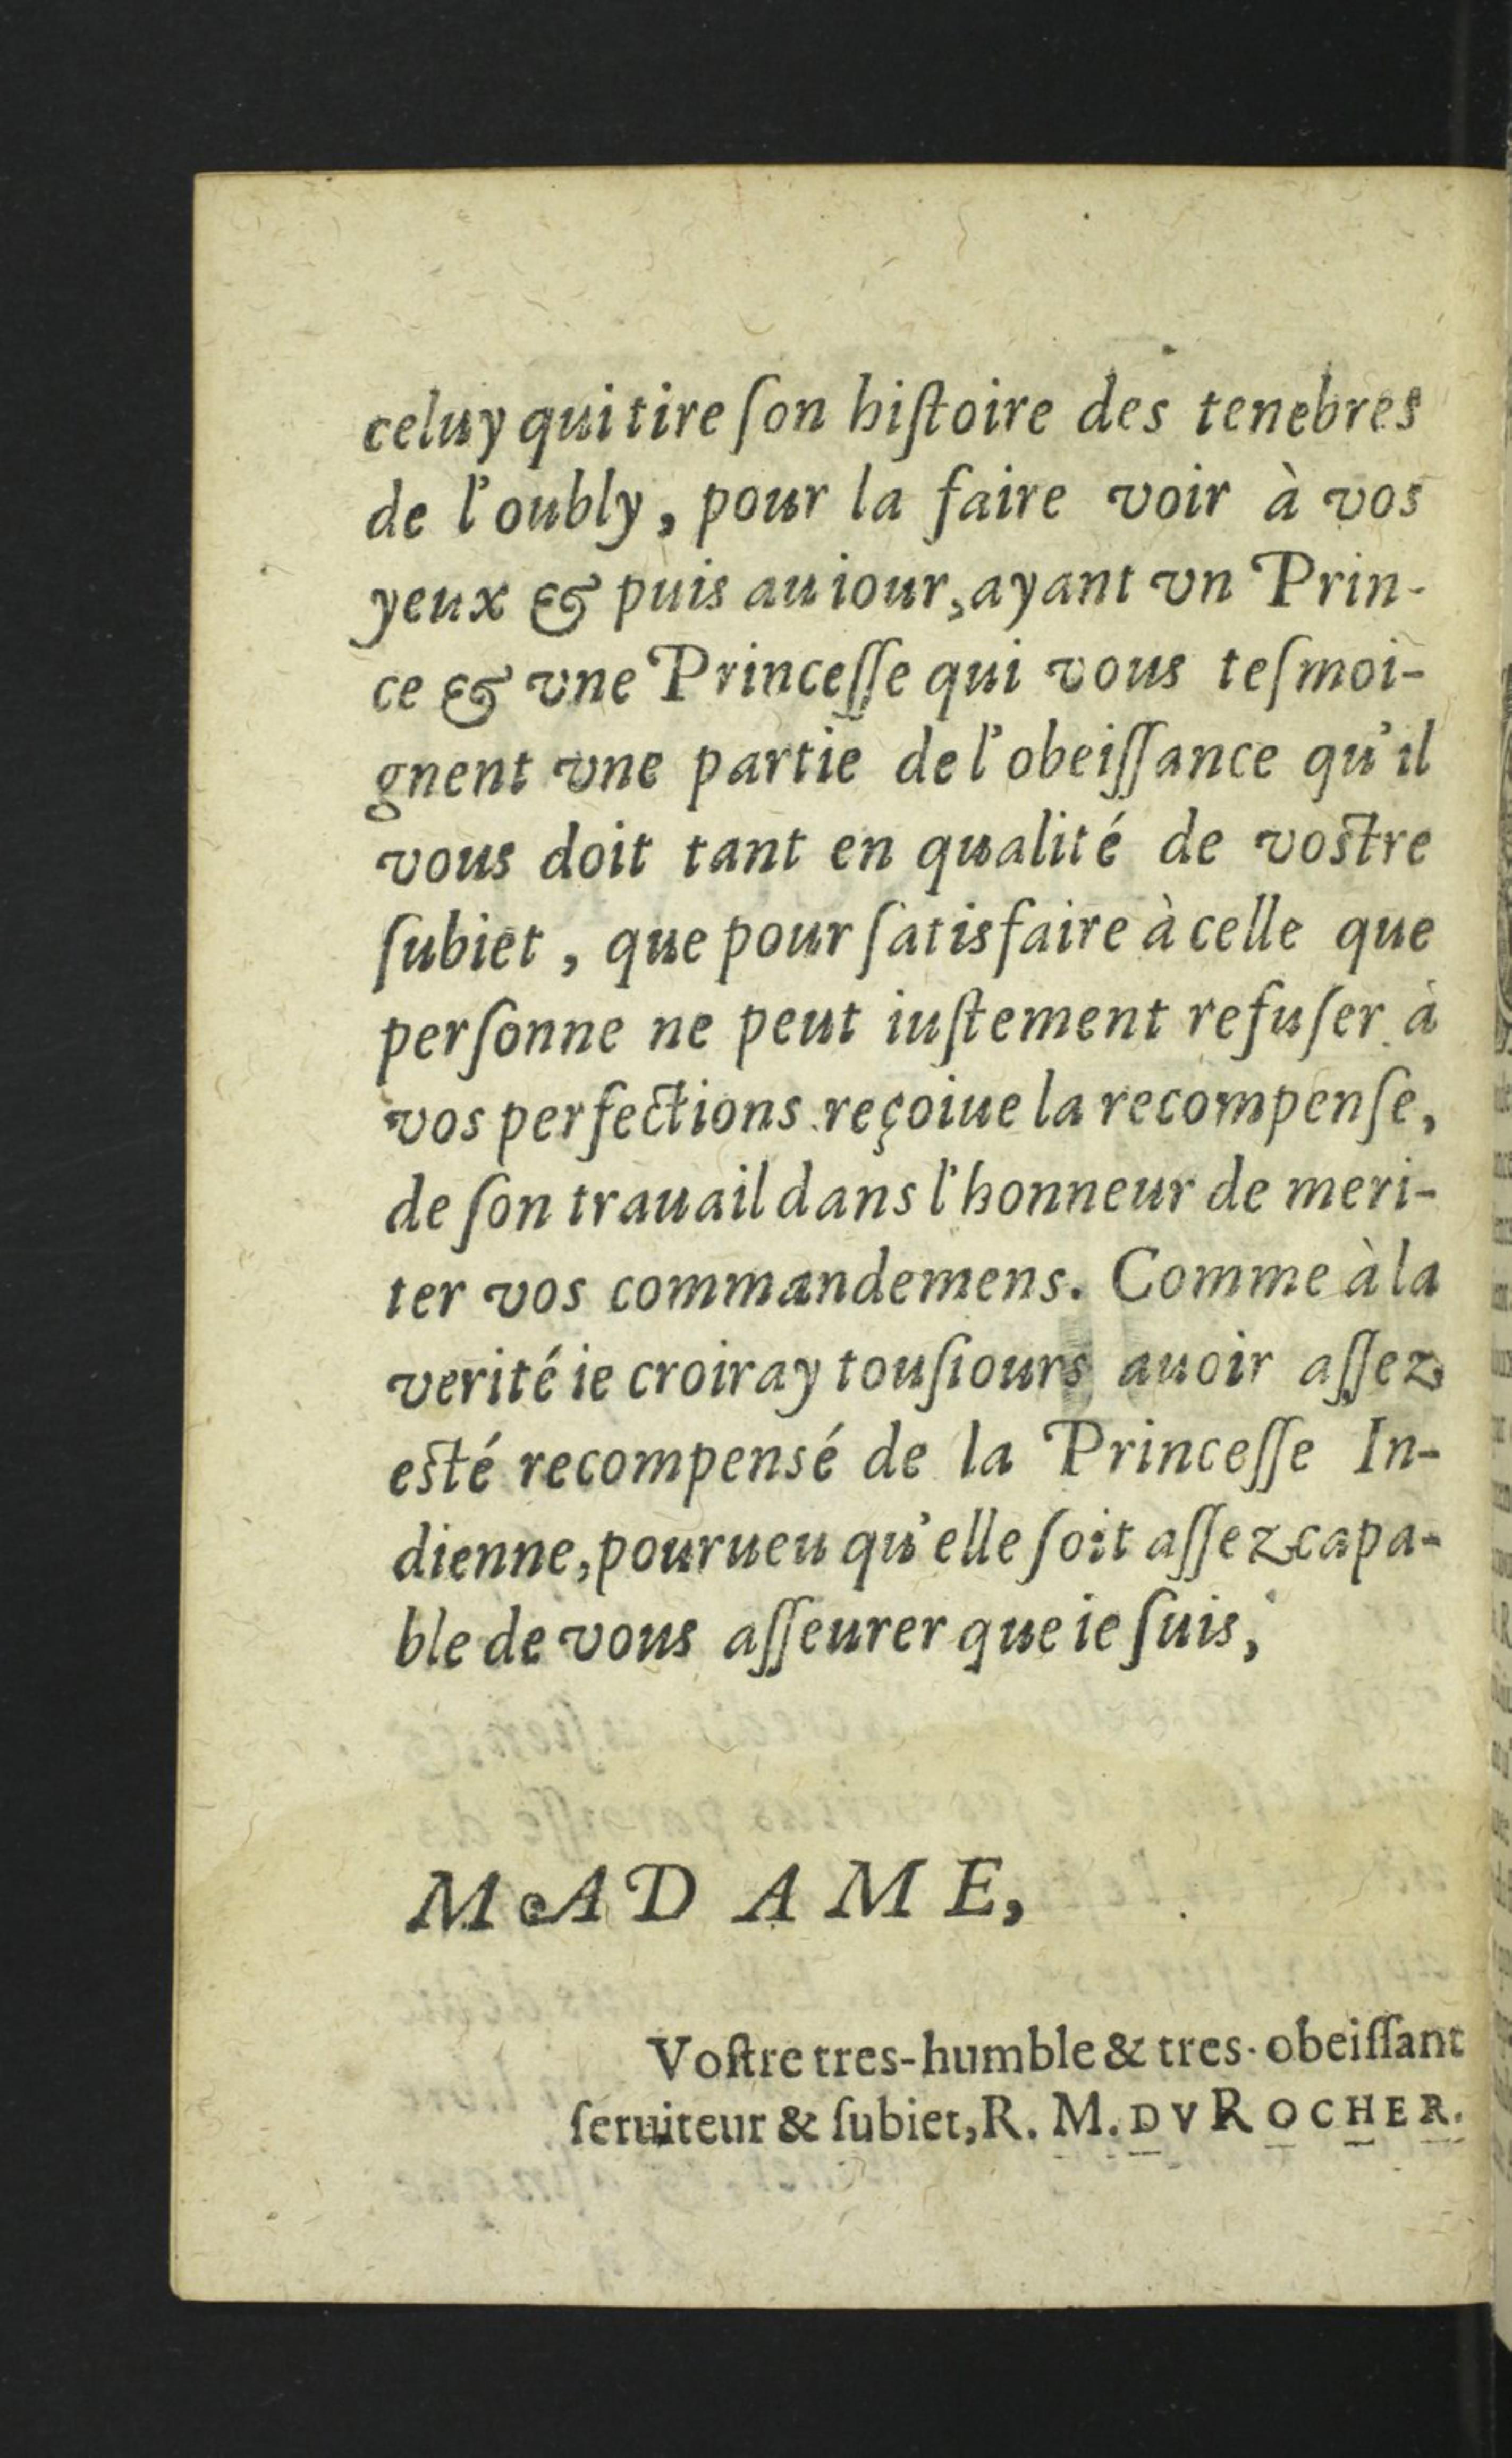 celuy qui tire ſon hiſtoire des tenebres
de l'oubly, pour la faire voir à vos
yeux & puis au iour, ayant vn Prin-
ce & vne Princeſſe qui vous teſmoi-
gnent vne partie de l'obeiſſance qu'il
vous doit tant en qualité de vostre
ſubiet, que pour ſatisfaire à celle que
perſonne ne peut iuſtement refuſer à
vos perfections reçoiue la recompenſe,
de ſon trauail dans l'honneur de meri-
ter vos commandemens. Comme à la
verité ie croiray touſiours auoir aſſez
esté recompensé de la Princeſſe In-
dienne, pourueu qu'elle ſoit aſſez capa-
ble de vous aſſeurer que ie ſuis,
MADAME,
Voſtre tres-humble & tres-obeiſſant
ſeruiteur & ſubiet, R. M. DV ROCHER.